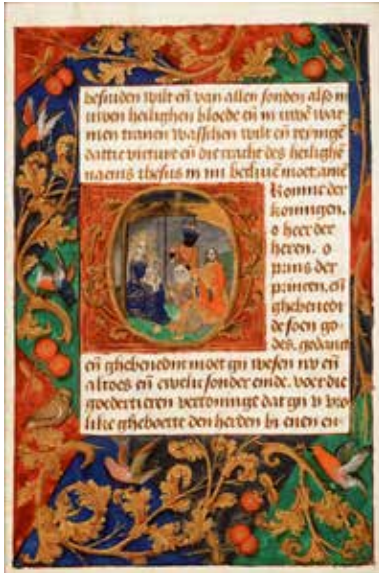 besniden wilt eñ van allen sonden alse in
uwen heilighen bloede eñ in uwē war
men tranen wasschen wilt eñ reynigē
dattie virtute eñ die cracht des heilighē
naems ihesus in mi becliuē moet. amē
konnic der
koningen.
o heer der
heren. o
prins der
princen. eñ
ghebenedi
de soen go
des. gedanct
eñ ghebenedijt moet gij wesen nv eñ
altoes eñ ewelic sonder einde. voer die
goedertieren vertoninge dat gij v vro
like gheboerte den herden bi enen en